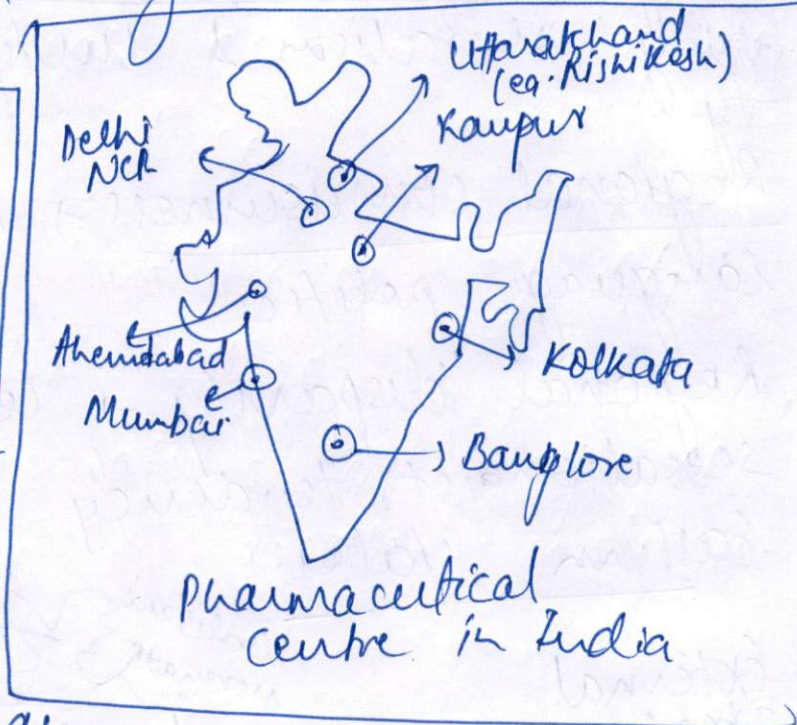 Uttarakhand
(eg. Rishikesh)
Kanpur
Delhi
NCR
Ahemdabad
Mumbai
Kolkata
Banglore
Pharmaceutical
Centre in India